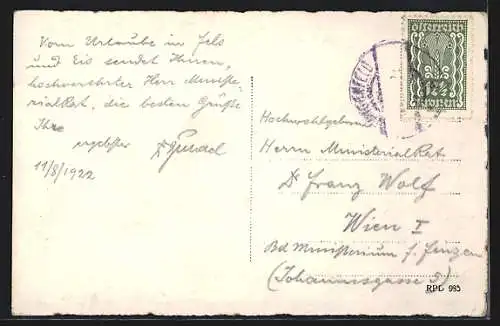 Vom Urlaube in Fels
und Eis sendet Ihnen,
hochverehrter Herr Ministe-
rialRat, die besten Grüße
Ihr
ergebster
11/8/1922
Österreich
12½
Kronen
Hochwohlgeboren
Herrn MinisterialRat
Dr Franz Wolf
Wien I
Bd Ministerium f. Finzen
(Johannesgasse 5)
RPD 985